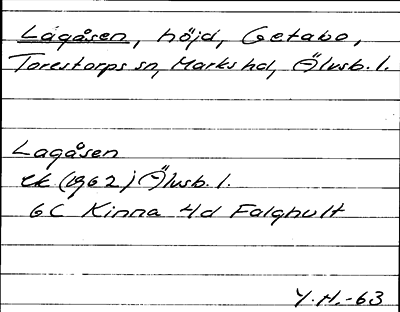 Lågåsen, höjd, Getabo,
Torestorps sn, Marks hd, Älvsb. l.
Lagåsen
ek (1962) Älvsb. l.
6C Kinna 4d Falghult
Y.H.-63